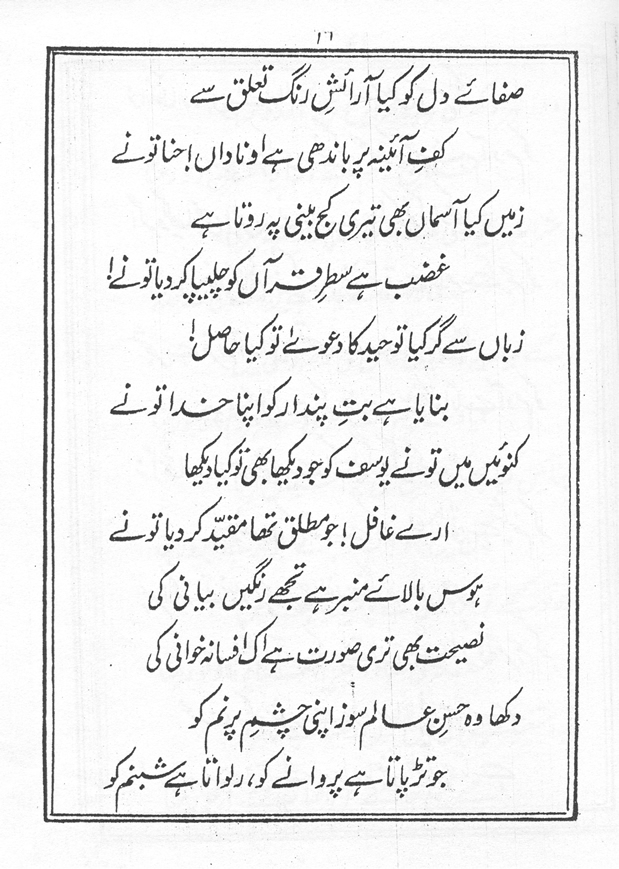 ۱۶
صفائے دل کو کیا آرائشِ رنگِ تعلق سے
کفِ آئینہ پر باندھی ہے او ناداں! حنا تو نے
زمیں کیا آسماں بھی تیری کج بینی پہ روتا ہے
غضب ہے سطرِ قرآں کو چلیپا کر دیا تو نے!
زباں سے گر کیا توحید کا دعوےٰ تو کیا حاصل!
بنایا ہے بتِ پندار کو اپنا خدا تو نے
کنوئیں میں تو نے یوسف کو جو دیکھا بھی تو کیا دیکھا
ارے غافل! جو مطلق تھا مقیّد کر دیا تو نے
ہوس بالائے منبر ہے تجھے رنگیں بیانی کی
نصیحت بھی تری صورت ہے اک افسانہ خوانی کی
دکھا وہ حسنِ عالم سوز اپنی چشمِ پرنم کو
جو تڑپاتا ہے پروانے کو، رلواتا ہے شبنم کو